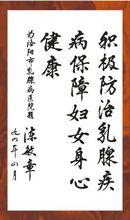 积极防治乳腺疾
病保障妇女身心
健康
为洛阳市乳腺病医院题
陈敏章
九八年八月